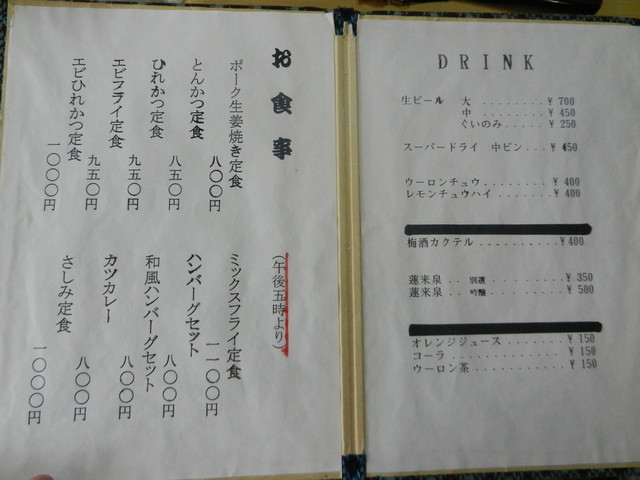 お食事
(午後五時より)
ポーク生姜焼き定食
八〇〇円
とんかつ定食
八五〇円
ひれかつ定食
九五〇円
エビフライ定食
九五〇円
エビひれかつ定食
一〇〇〇円
ミックスフライ定食
一一〇〇円
ハンバーグセット
八〇〇円
和風ハンバーグセット
八〇〇円
カツカレー
八〇〇円
さしみ定食
一〇〇〇円
DRINK
生ビール 大 ........ ¥ 700
中 ........ ¥ 450
ぐいのみ ..... ¥ 250
スーパードライ 中ビン ... ¥ 450
ウーロンチュウ ......... ¥ 400
レモンチュウハイ ........ ¥ 400
梅酒カクテル .......... ¥400
蓮来泉 .. 別選 ......... ¥ 350
蓮来泉 .. 吟醸 ......... ¥ 500
オレンジジュース ....... ¥ 150
コーラ ............ ¥ 150
ウーロン茶 .......... ¥ 150